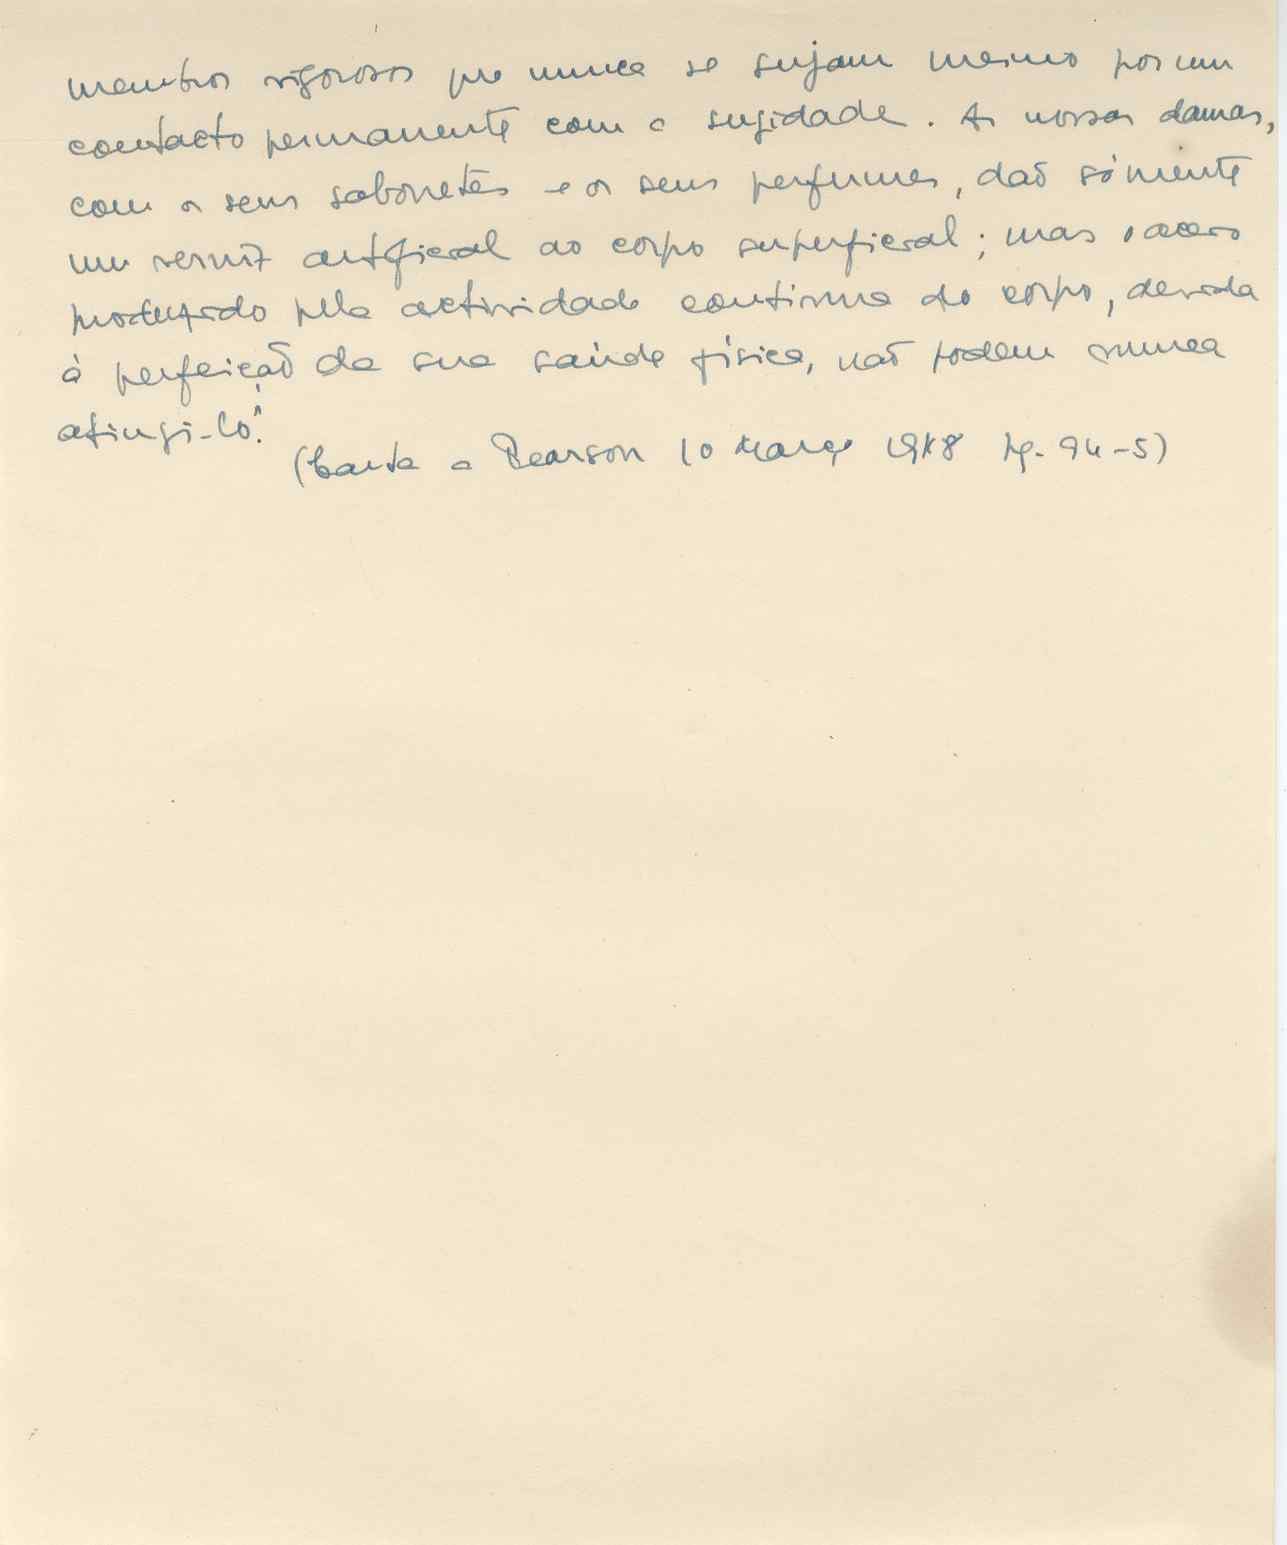 membros vigorosos que nunca se sujam mesmo por um
contacto permanente com a sugidade. As nossas damas,
com os seus sabonetes e os seus perfumes, daõ sómente
um verniz artificial ao corpo superficial; mas o aceio
produzido pela actividade continua do corpo, devida
à perfeiçaõ da sua saúde física, naõ podem nunca
atingi-lo."
(Carta a Pearson 10 Março 1918 pg. 94-5)